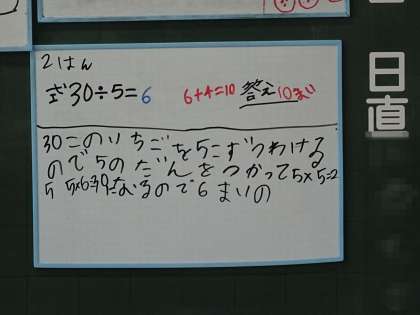 2はん
式 30÷5=6 6+4=10 答え10まい
30このいちごを5こずつわける
ので5のだんをつかって5×5=2
5 5×6=30になるので6まいの
日直